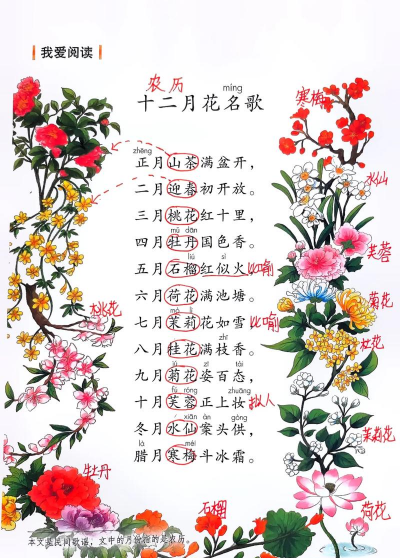 我爱阅读
农历
míng
十二月花名歌
寒梅
zhēng
正月山茶满盆开，
二月迎春初开放。
水仙
三月桃花红十里，
mǔ dān
四月牡丹国色香。
芙蓉
liú sì
五月石榴红似火，比喻
六月荷花满池塘。
菊花
mò lì
七月茉莉花如雪，比喻
桃花
zhī
八月桂花满枝香。
jú zī
九月菊花姿百态，
fú róng zhuāng
十月芙蓉正上妆。拟人
茉莉花
xiān àn gòng
冬月水仙案头供，
là méi
腊月寒梅斗冰霜。
牡丹
荷花
石榴
本文是民间歌谣，文中的月份指的是农历。